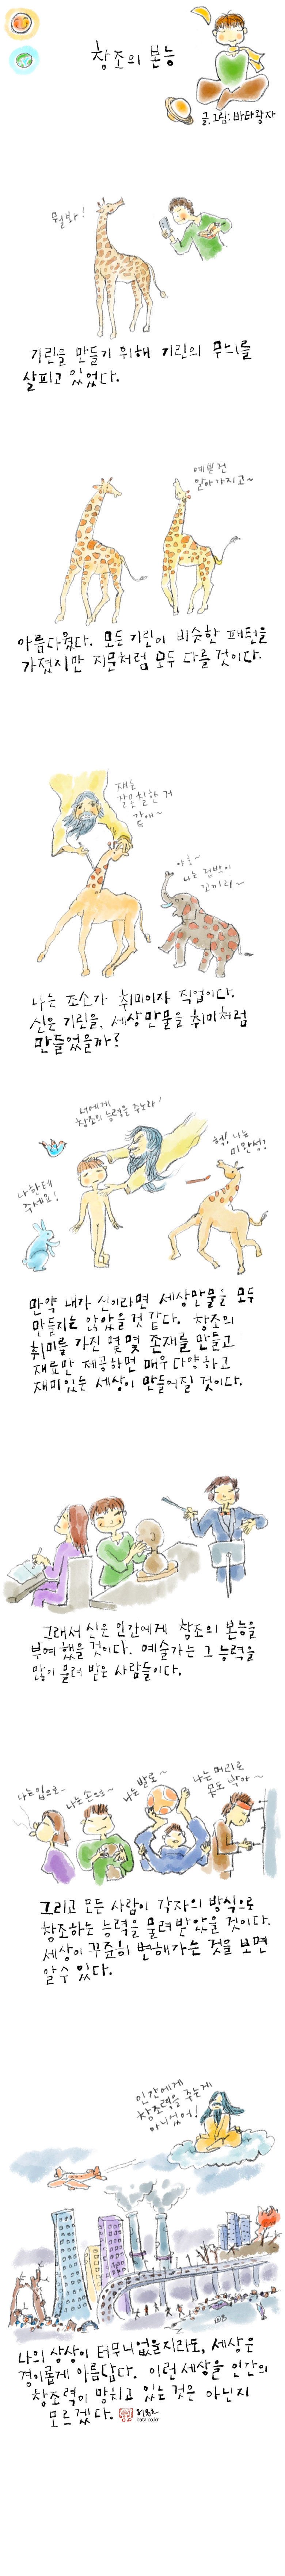 창조의 본능
글,그림:바타왕자
뭘봐!
기린을 만들기 위해 기린의 무늬를
살피고 있었다.
예쁜건
알아가지고~
아름다웠다. 모든 기린이 비슷한 패턴을
가졌지만 지문처럼 모두 다를 것이다.
쟤는
잘못칠한 거
같애~
야호~
나는 점박이
코끼리~
나는 조소가 취미이자 직업이다.
신은 기린을, 세상만물을 취미처럼
만들었을까?
너에게
창조의 능력을 주노라!
나한테
주세요!
헉! 나는
미완성?
만약 내가 신이라면 세상만물을 모두
만들지는 않았을 것 같다. 창조의
취미를 가진 몇몇 존재를 만들고
재료만 제공하면 매우 다양하고
재미있는 세상이 만들어질 것이다.
그래서 신은 인간에게 창조의 본능을
부여했을 것이다. 예술가는 그 능력을
많이 물려 받은 사람들이다.
나는입으로~
나는손으로~
나는발로~
나는머리로
못도 박아~
그리고 모든 사람이 각자의 방식으로
창조하는 능력을 물려받았을 것이다.
세상이 꾸준히 변해가는 것을 보면
알수 있다.
인간에게
창조력을 주는게
아니었어!
나의 상상이 터무니없을지라도, 세상은
경이롭게 아름답다. 이런세상을 인간의
창조력이 망치고 있는 것은 아닌지
모르겠다.
bata.co.kr